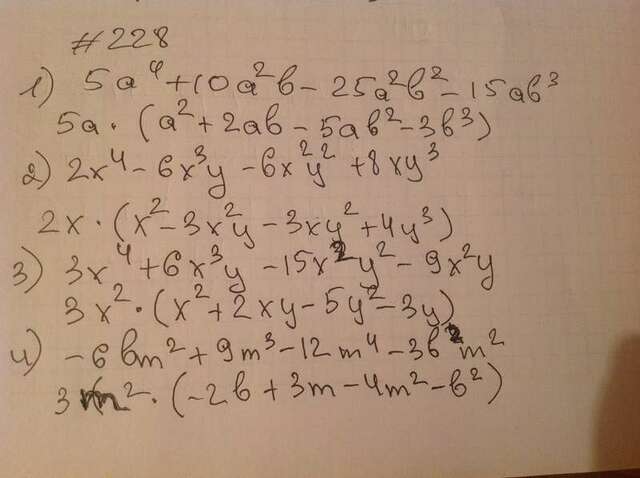 #228
1) 5a⁴+10a²b-25a²b²-15ab³
5a·(a²+2ab-5ab²-3b³)
2) 2x⁴-6x³y-6x²y²+8xy³
2x·(x²-3x²y-3xy²+4y³)
3) 3x⁴+6x³y-15x²y²-9x²y
3x²·(x²+2xy-5y²-3y)
4) -6bm²+9m³-12m⁴-3b²m²
3m²·(-2b+3m-4m²-b²)